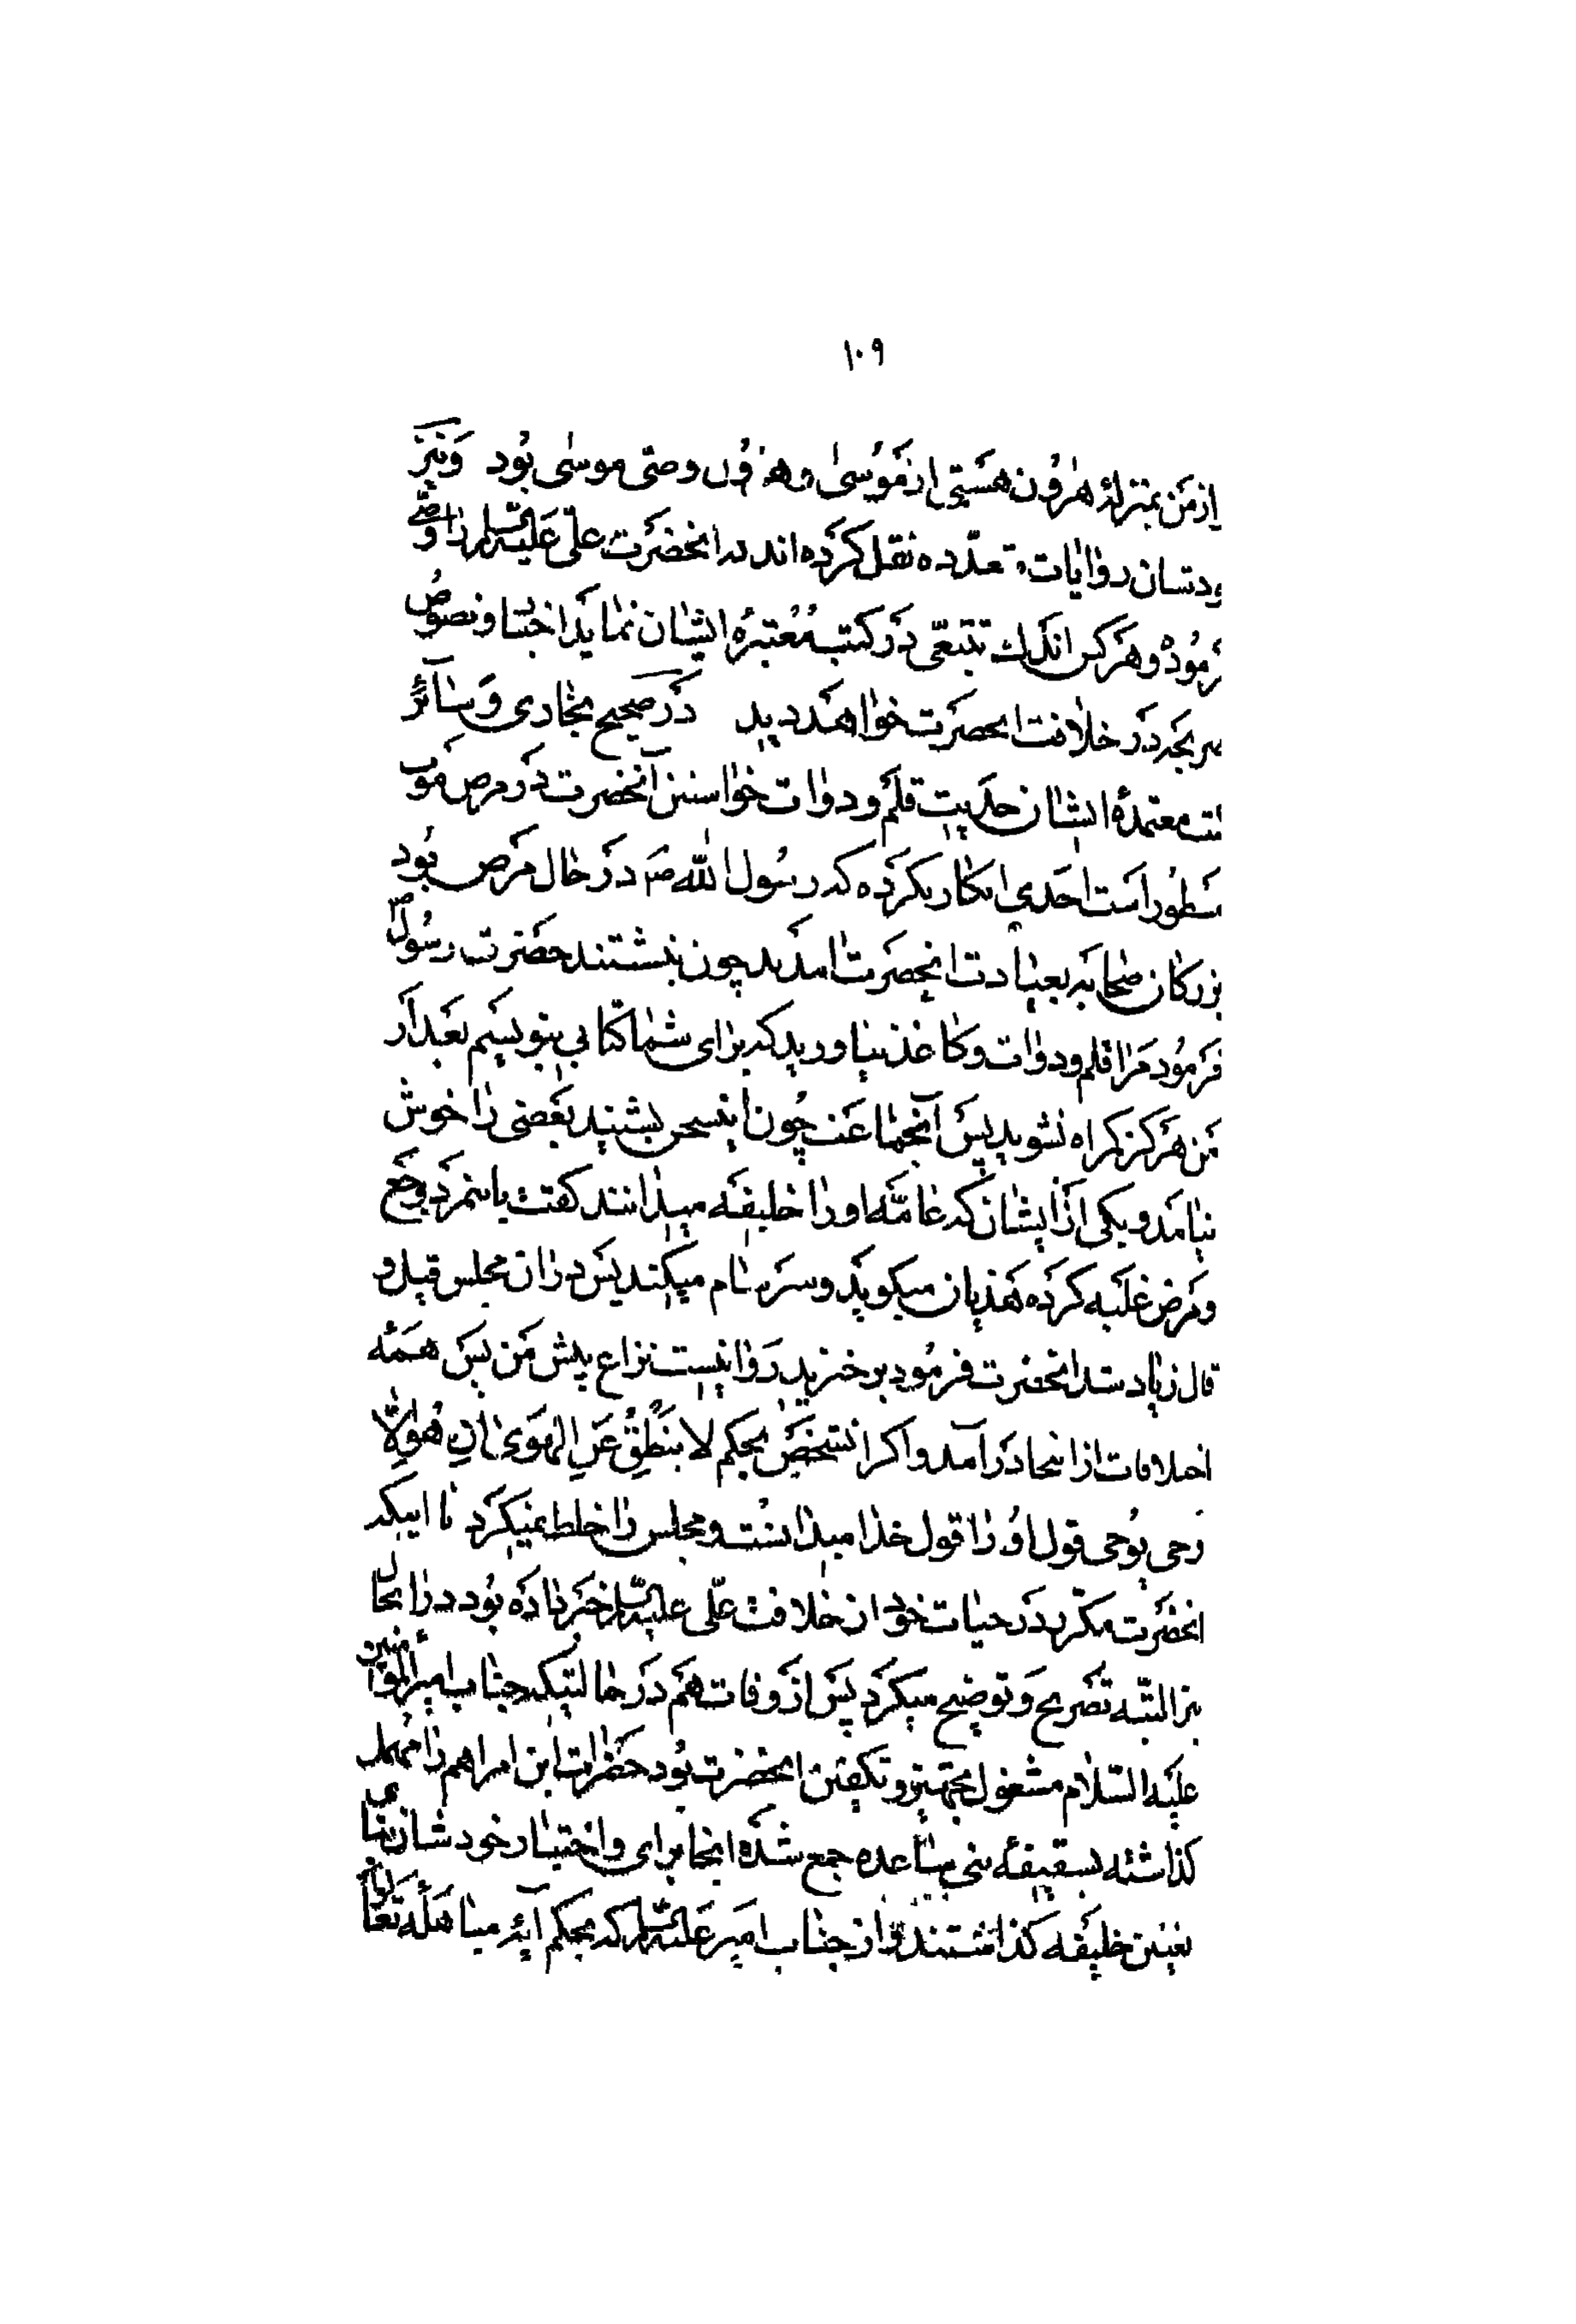 ۱۰۹
از من بمنزله هرون هستی از موسی و هرون وصی موسی بود و نیز
دستان روایات متعدده نقل کرده‌اند که آنحضرت علی علیه السلام را وصی
فرموده و هر کس اندک تتبعی در کتب معتبره ایشان نماید اخبار و نصوص
صریحه در خلافت آنحضرت خواهد دید در صحیح بخاری و سائر
کتب معتمدهٔ ایشان حدیث قلم و دوات خواستن آنحضرت در مرض موت
مسطور است احدی انکار نکرده که رسول الله ص در حال مرض بود
بزرگان صحابه بعیادت آنحضرت آمدند چون بنشستند حضرت رسول ص
فرمود مرا قلم و دوات و کاغذ بیاورید که برای شما کتابی بنویسم بعد از
من هرگز گمراه نشوید پس آنجماعت چون اینسخن بشنید بعضی را خوش
نیامد و یکی از ایشان که عامّه او را خلیفه میدانند گفت باینمرد وجع
و مرض غلبه کرده هذیان میگوید و سرسام میکند پس در آن مجلس قیل و
قال زیاد شد آنحضرت فرمود برخیزید روا نیست نزاع پیش من پس همه
اختلافات از اینجا در آمد و اگر آنشخص بحکم لا ینطق عن الهوی ان هو الّا
وحی یوحی قول او را قول خدا میدانست و مجلس را خلط نمیکرد با اینکه
آنحضرت مکرر در حیات خود از خلافت علی علیه السلام خبر داده بود در آنحال
نیز البته تصریح و توضیح میکرد پس از وفات هم در حالتیکه جناب امیرالمؤمنین
علیه السلام مشغول بتجهیز و تکفین آنحضرت بود حضرات این امر اهم را مهمل
گذاشته بسقیفهٔ بنی ساعده جمع شده آنجا برای و اختیار خودشان بنای
تعیین خلیفه گذاشتند و از جناب امیر علیه السلام که بحکم آیهٔ مباهله تعالوا